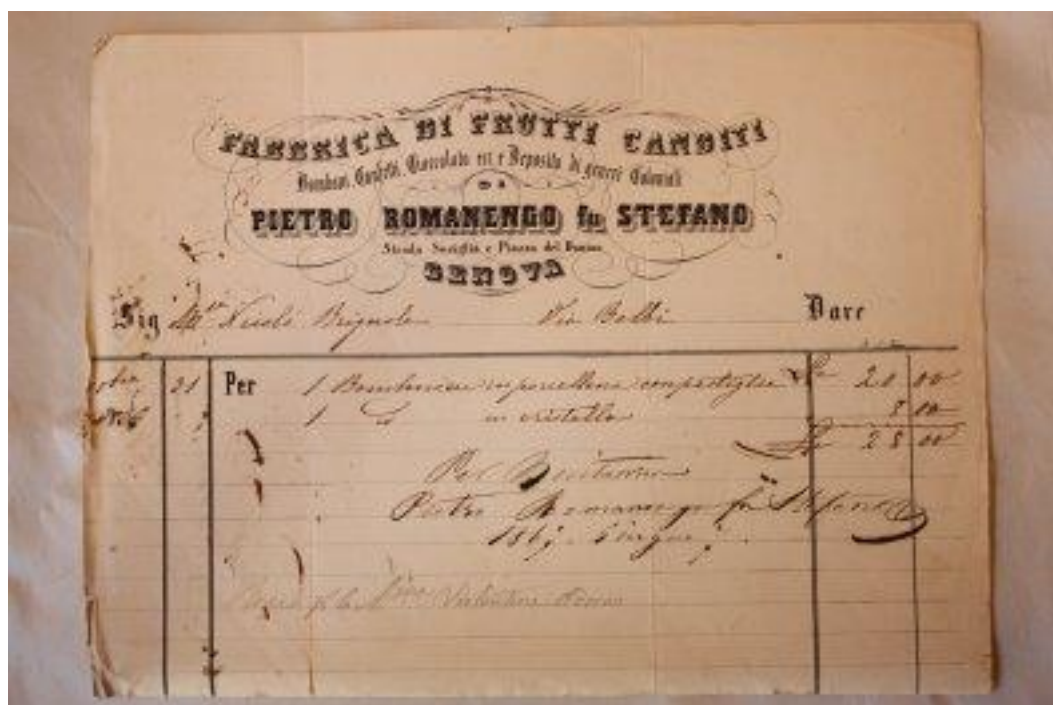 FABBRICA DI FRUTTI CANDITI
Bomboni, Confetti, Cioccolato ecc e Deposito di generi Coloniali
DI
PIETRO ROMANENGO fu STEFANO
Strada Soziglia e Piazza del
GENOVA
Sig M.se Nicolò Brignole Via Balbi Dare
21 Per 1 Bomboniera in porcellana con pastiglie L 20 00
1 d in cristallo 8 00
L 28 00
Per
Pietro Romanengo fu Stefano